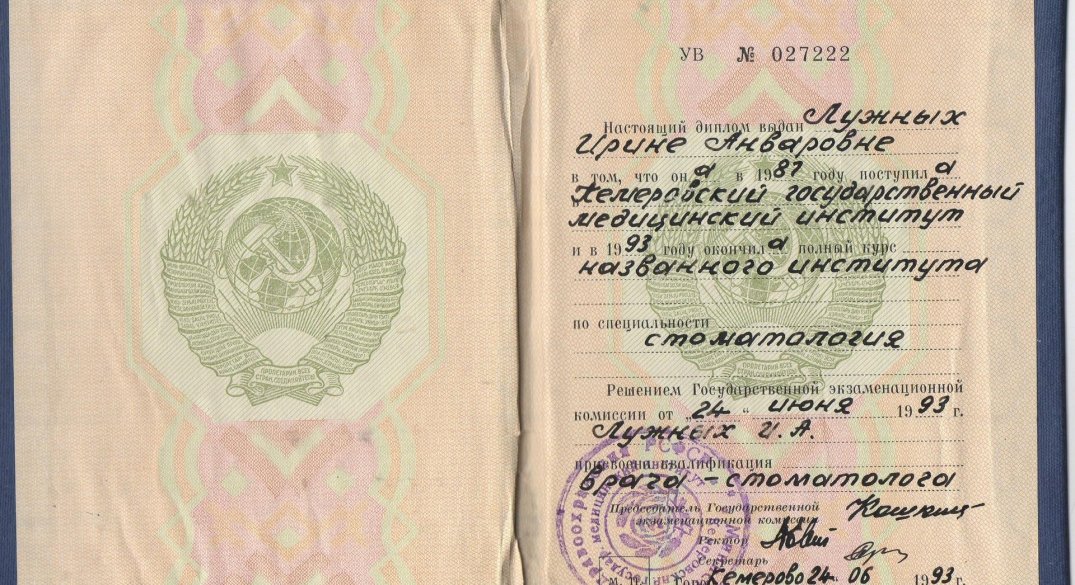 УВ № 027222
Настоящий диплом выдан Лужных
Ирине Анваровне
в том, что он а в 1987 году поступил а
в Кемеровский государственный
медицинский институт
и в 1993 году окончил а полный курс
названного института
по специальности
стоматология
Решением Государственной экзаменационной
комиссии от „24“ июня 1993 г.
Лужных И. А.
присвоена квалификация
врача - стоматолога
Председатель Государственной
экзаменационной комиссии
Ректор
Секретарь
Город Кемерово 24 06 1993 г.
ПРОЛЕТАРИИ ВСЕХ
СТРАН, СОЕДИНЯЙТЕСЬ!